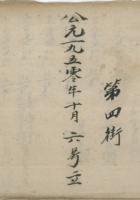 第四街
公元一九五零年十月六号立